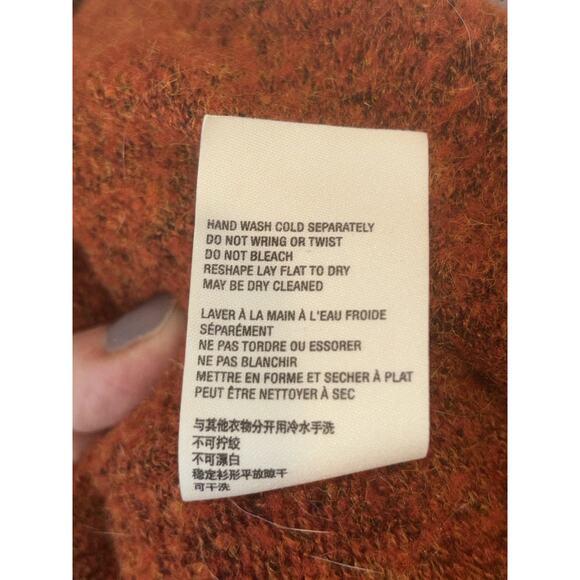 HAND WASH COLD SEPARATELY
DO NOT WRING OR TWIST
DO NOT BLEACH
RESHAPE LAY FLAT TO DRY
MAY BE DRY CLEANED
LAVER À LA MAIN À L'EAU FROIDE
SÉPARÉMENT
NE PAS TORDRE OU ESSORER
NE PAS BLANCHIR
METTRE EN FORME ET SECHER À PLAT
PEUT ÊTRE NETTOYER À SEC
与其他衣物分开用冷水手洗
不可拧绞
不可漂白
稳定衫形平放晾干
可干洗